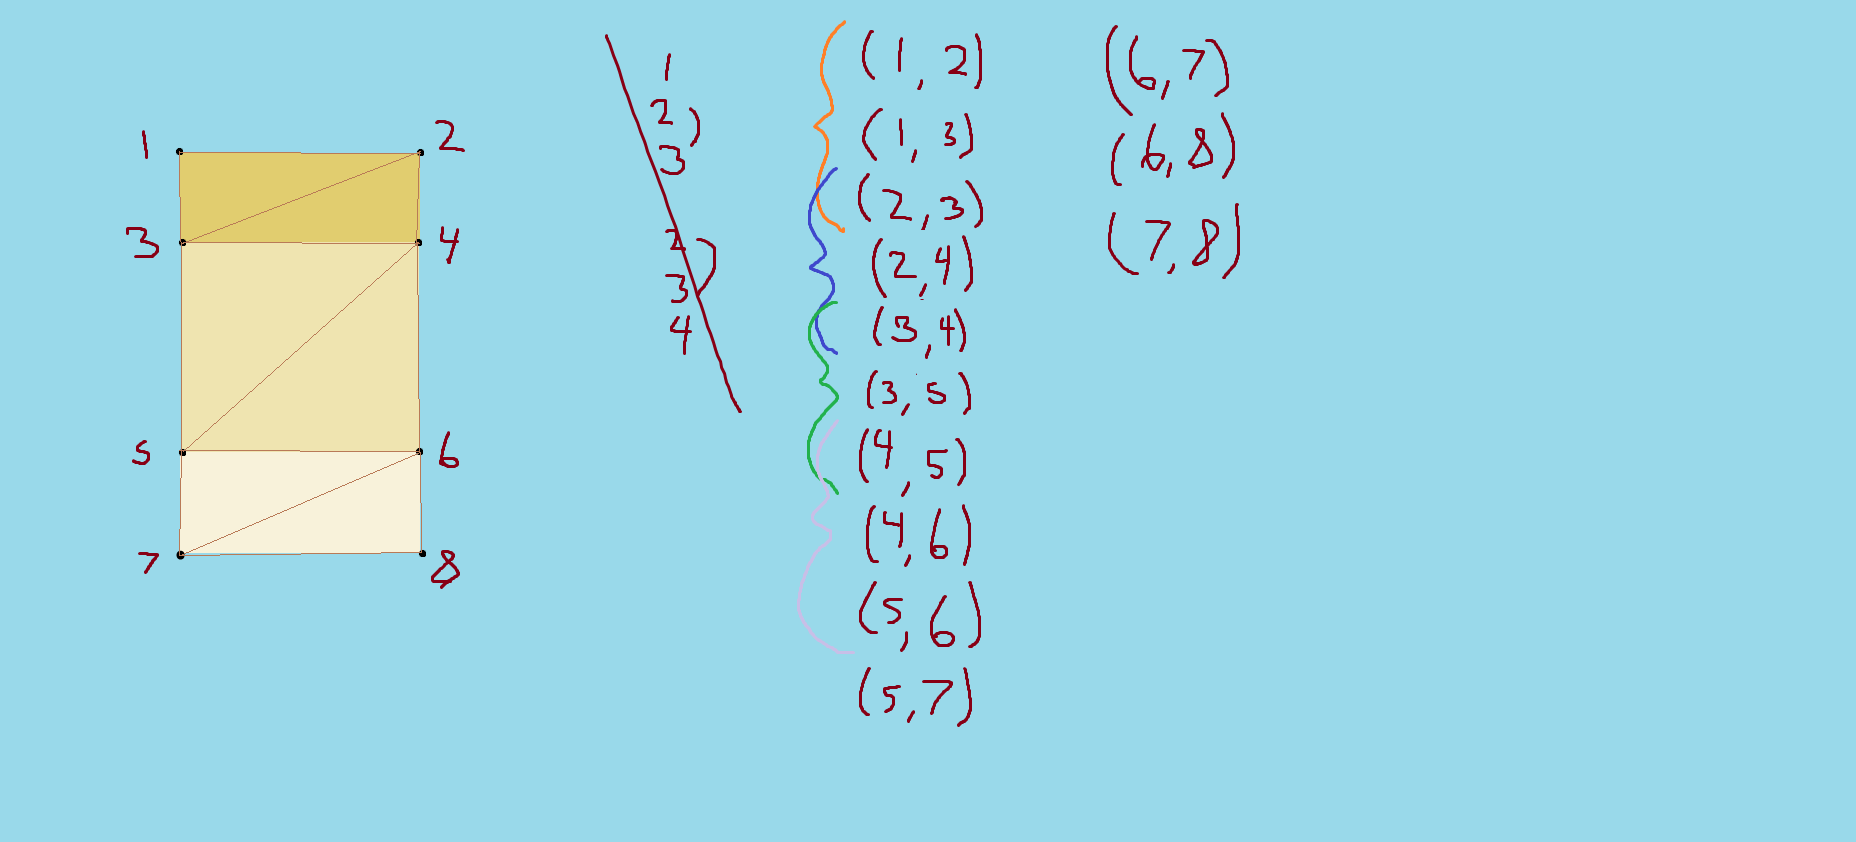 1
2
3
4
5
6
7
8
1
2
3
2
3
4
(1, 2)
(1, 3)
(2, 3)
(2, 4)
(3, 4)
(3, 5)
(4, 5)
(4, 6)
(5, 6)
(5, 7)
(6, 7)
(6, 8)
(7, 8)